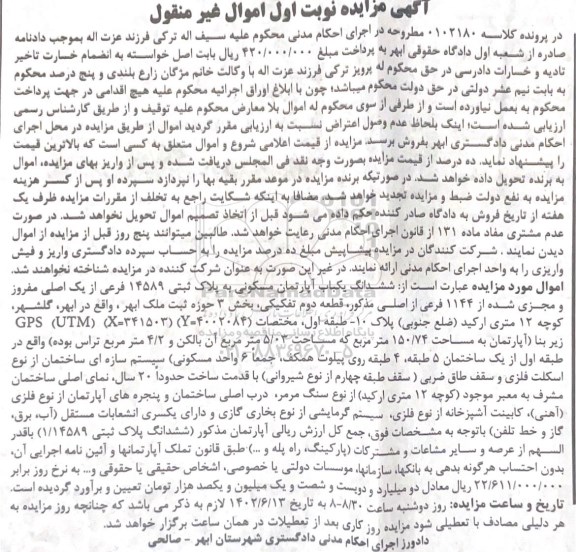 آگهی مزایده نوبت اول اموال غیر منقول
در پرونده کلاسه ۰۱۰۲۱۸۰ مطروحه در اجرای احکام مدنی محکوم علیه سیف اله ترکی فرزند عزت اله بموجب دادنامه
صادره از شعبه اول دادگاه حقوقی ابهر به پرداخت مبلغ ۴۲۰/۰۰۰/۰۰۰ ریال بابت اصل خواسته به انضمام خسارت تاخیر
تادیه و خسارات دادرسی در حق محکوم له پرویز ترکی فرزند عزت اله با وکالت خانم مژگان زارع بلندی و پنج درصد محکوم
به بابت نیم عشر دولتی در حق دولت محکوم میباشد؛ چون با ابلاغ اوراق اجرائیه محکوم علیه هیچ اقدامی در جهت پرداخت
محکوم به بعمل نیاورده است و از طرفی از سوی محکوم له اموال بلا معارض محکوم علیه توقیف و از طریق کارشناس رسمی
ارزیابی شده است؛ اینک بلحاظ عدم وصول اعتراض نسبت به ارزیابی مقرر گردید اموال از طریق مزایده در محل اجرای
احکام مدنی دادگستری ابهر بفروش برسد. مزایده از قیمت اعلامی شروع و اموال متعلق به کسی است که بالاترین قیمت
را پیشنهاد نماید. ده درصد از قیمت مزایده بصورت وجه نقد فی المجلس دریافت شده و پس از واریز بهای مزایده، اموال
به برنده تحویل داده خواهد شد. در صورتیکه برنده مزایده در موعد مقرر بقیه بها را نپردازد سپرده او پس از کسر هزینه
مزایده به نفع دولت ضبط و مزایده تجدید خواهد شد. مضافا به اینکه شکایت راجع به تخلف از مقررات مزایده ظرف یک
هفته از تاریخ فروش به دادگاه صادر کننده حکم داده می شود قبل از اتخاذ تصمیم اموال تحویل نخواهد شد. در صورت
عدم مشتری مفاد ماده ۱۳۱ از قانون اجرای احکام مدنی رعایت خواهد شد. طالبین میتوانند پنج روز قبل از مزایده از اموال
دیدن نمایند . شرکت کنندگان در مزایده پیشاپیش مبلغ ده درصد مزایده را به حساب سپرده دادگستری واریز و فیش
واریزی را به واحد اجرای احکام مدنی ارائه نمایند. در غیر این صورت به عنوان شرکت کننده در مزایده شناخته نخواهند شد.
اموال مورد مزایده عبارت است از: ششدانگ یکباب آپارتمان مسکونی به پلاک ثبتی ۱۴۵۸۹ فرعی از یک اصلی مفروز
و مجزی شده از ۱۱۴۴ فرعی از اصلی مذکور، قطعه دوم تفکیکی، بخش ۳ حوزه ثبت ملک ابهر ، واقع در ابهر، گلشهر،
کوچه ۱۲ متری ارکید (ضلع جنوبی) پلاک ۱۰-طبقه اول، مختصات (X=۳۴۱۵۰۳) (Y=۴۰۰۲۰۸۴) GPS (UTM)
زیر بنا (آپارتمان به مساحت ۱۵۰/۷۴ متر مربع که مساحت ۵/۰۳ متر مربع آن بالکن و ۴/۲ متر مربع تراس بوده) واقع در
طبقه اول از یک ساختمان ۵ طبقه، ۴ طبقه روی پیلوت همکف (جمعا ۶ واحد مسکونی) سیستم سازه ای ساختمان از نوع
اسکلت فلزی و سقف طاق ضربی ( سقف طبقه چهارم از نوع شیروانی) با قدمت ساخت حدوداً ۲۰ سال، نمای اصلی ساختمان
مشرف به معبر موجود (کوچه ۱۲ متری ارکید) از نوع سنگ مرمر، درب اصلی ساختمان و پنجره های آپارتمان از نوع فلزی
(آهنی)، کابینت آشپزخانه از نوع فلزی، سیستم گرمایشی از نوع بخاری گازی و دارای یکسری انشعابات مستقل (آب، برق،
گاز و خط تلفن) باتوجه به مشخصات فوق، جمع کل ارزش ریالی آپارتمان مذکور (ششدانگ پلاک ثبتی ۱/۱۴۵۸۹) باقدر
السهم از عرصه و سایر مشاعات و مشترکات (پارکینگ، راه پله و ...) طبق قانون تملک آپارتمانها و آئین نامه اجرایی آن،
بدون احتساب هرگونه بدهی به بانکها، سازمانها، موسسات دولتی یا خصوصی، اشخاص حقیقی یا حقوقی و... به نرخ روز برابر
۲۲/۶۱۱/۰۰۰/۰۰۰ ریال معادل دو میلیارد و دویست و شصت و یک میلیون و یکصد هزار تومان تعیین و برآورد گردیده است.
تاریخ و ساعت مزایده: روز دوشنبه ساعت ۸-۸/۳۰ به تاریخ ۱۴۰۲/۶/۱۳ لازم به ذکر می باشد که چنانچه روز مزایده به
هر دلیلی مصادف با تعطیلی شود مزایده روز کاری بعد از تعطیلات در همان ساعت برگزار خواهد شد.
دادورز اجرای احکام مدنی دادگستری شهرستان ابهر - صالحی